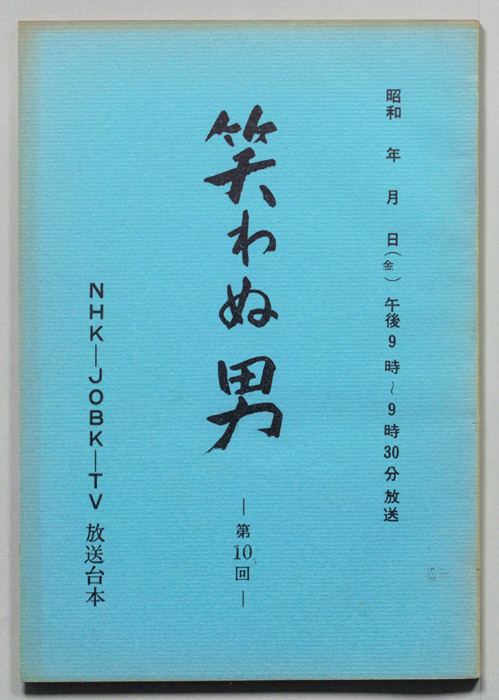 昭和　年　月　日（金）午後9時～9時30分放送
笑わぬ男
―第10回―
NHK―JOBK―TV 放送台本